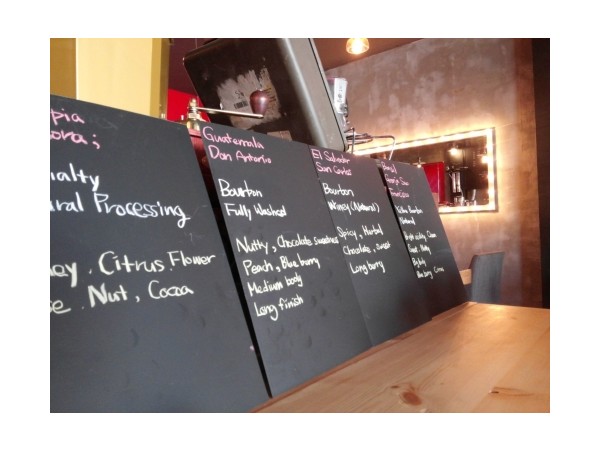 pia
ora;
ialty
ural Processing
ney . Citrus . Flower
se . Nut , Cocoa
Guatemala
Don Antonio
Bourbon
Fully Washed
Nutty , Chocolate sweetness
Peach , Blue burry
Medium body
Long finish
El Salvador
San Carlos
Bourbon
(Natural)
Spicy , Herbal
Chocolate , Sweet
Long burry
Brazil
Bourbon
Natural